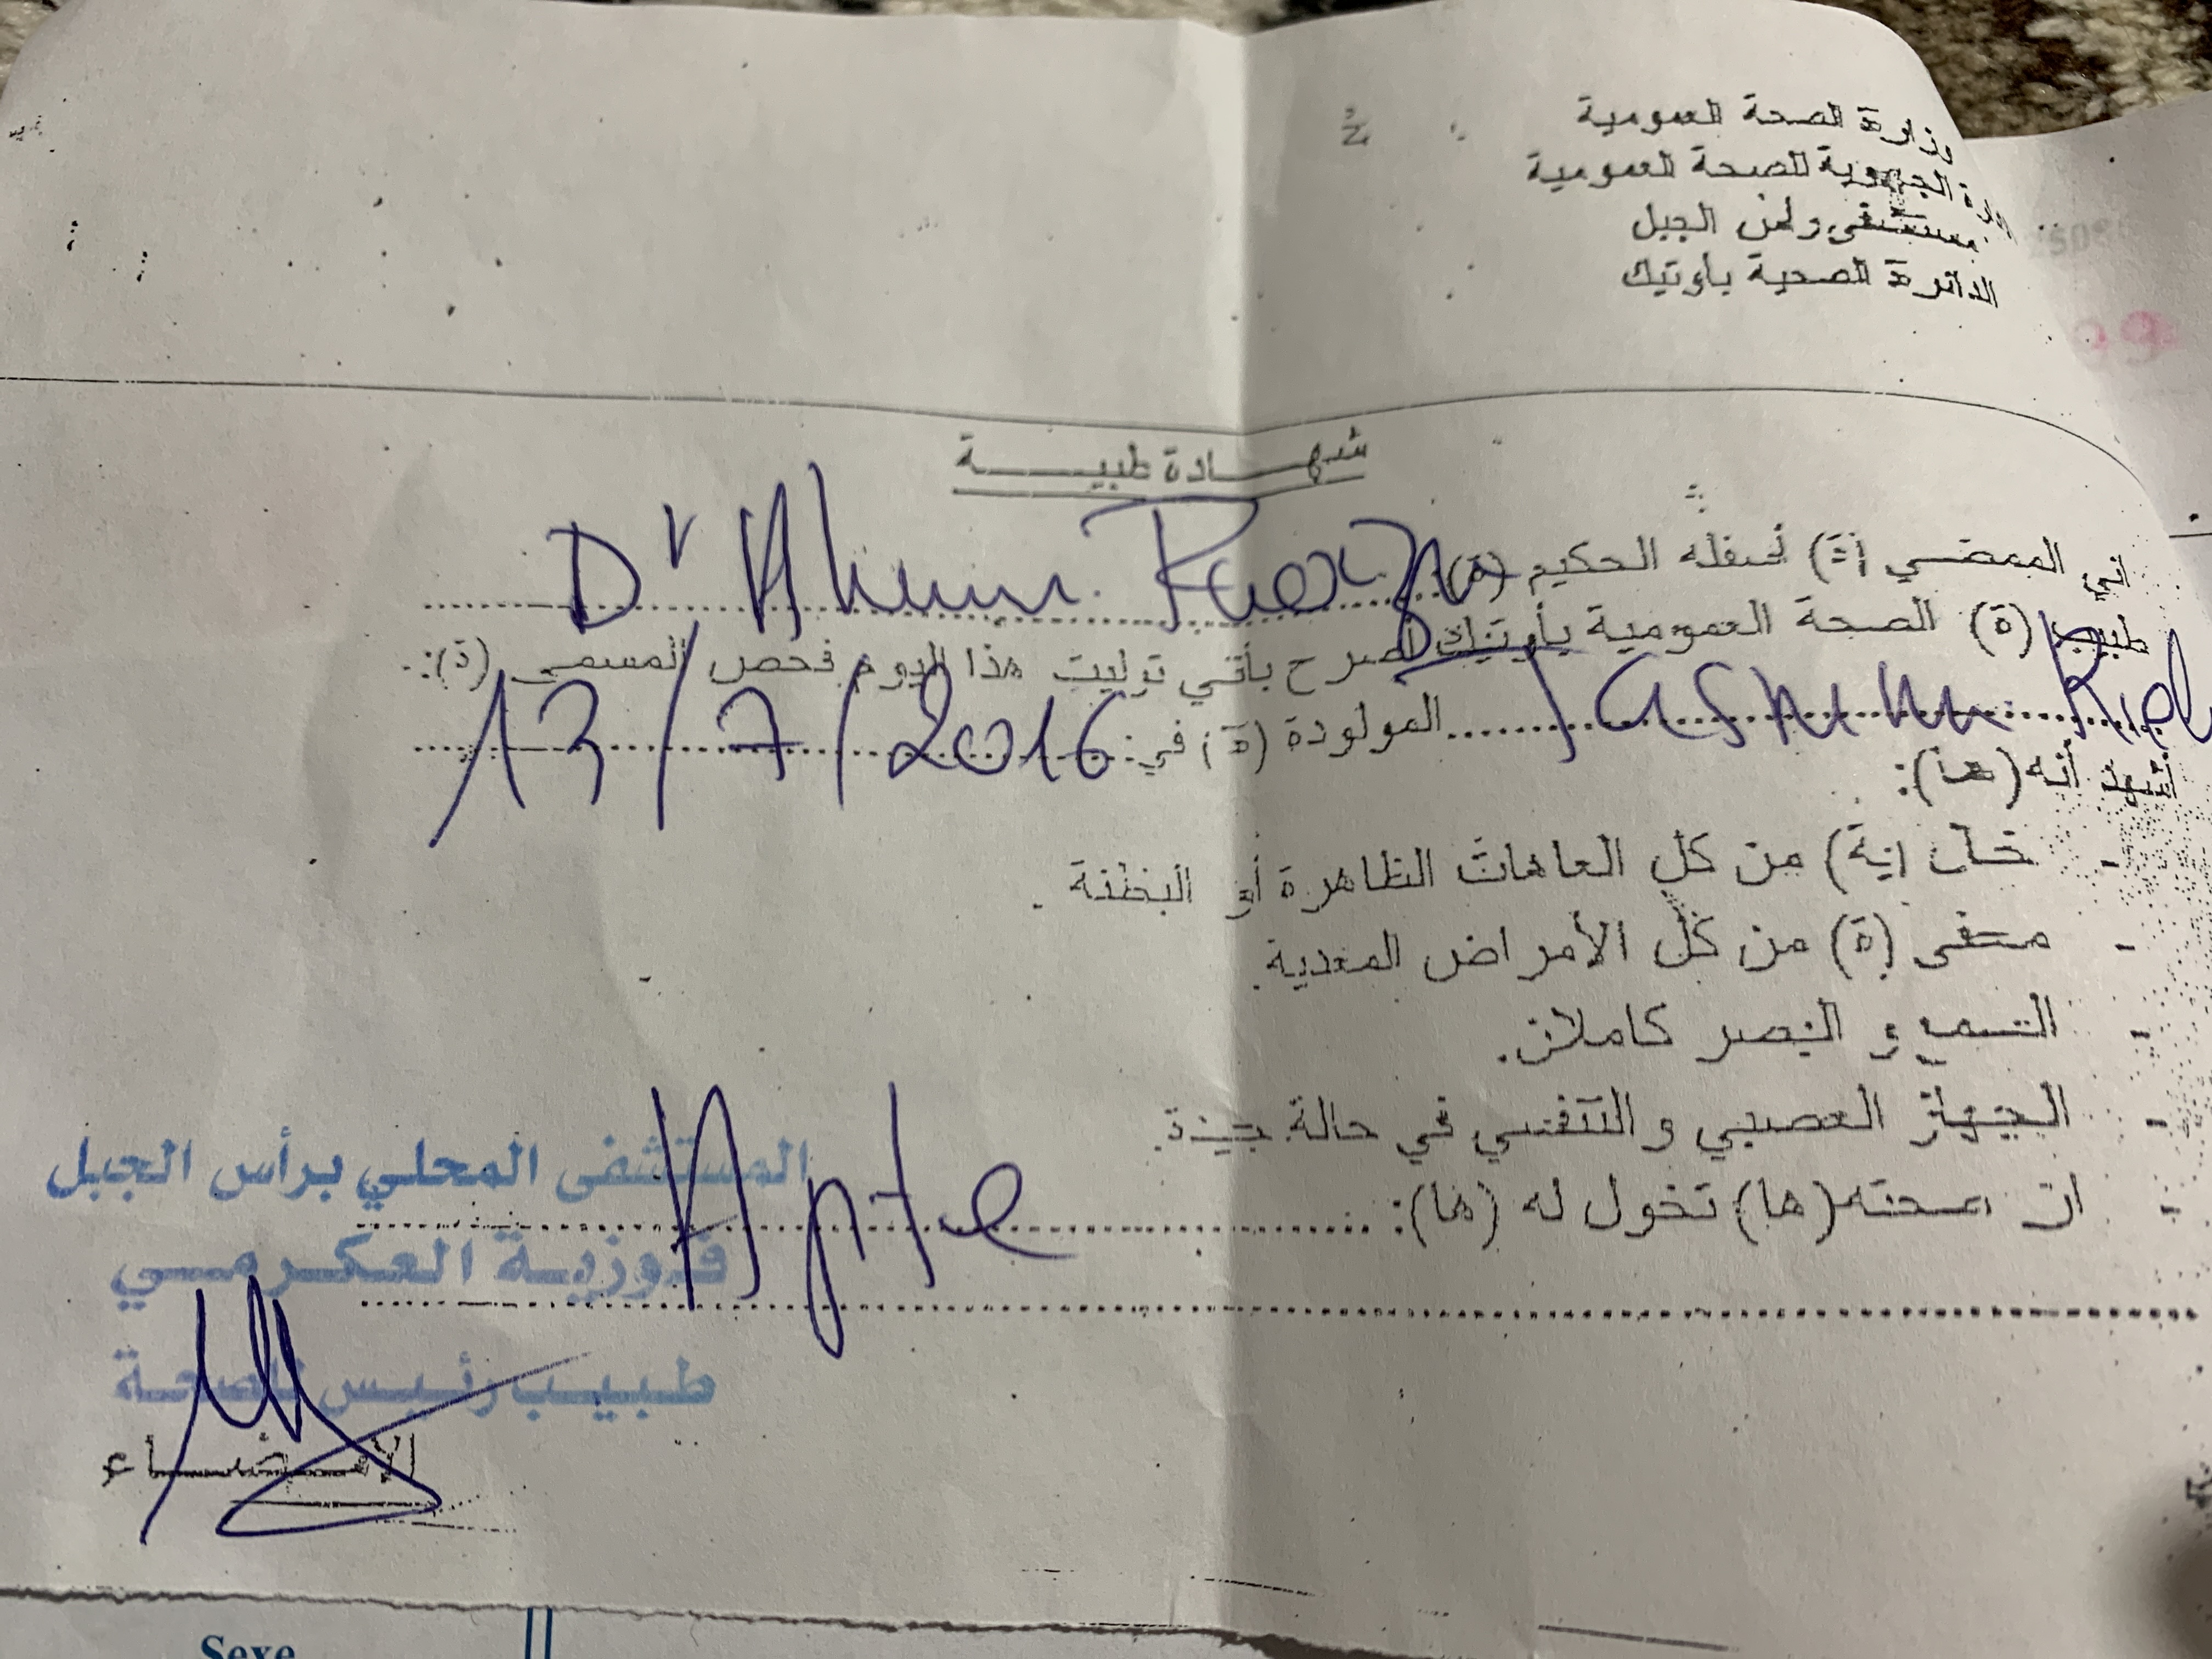 وزارة الصحة العمومية
الجهوية للصحة العمومية
مستشفى الجبل
الدائرة الصحية بأوتيك
شهـــادة طبيـــة
اني الممضي أسفله الحكيم (ة) Dr
طبيب (ة) الصحة العمومية بأوتيك أصرح بأني توليت هذا اليوم فحص المسمى (ة):
المولودة (ة) في: 13/7/2016
أشهد أنه (ها):
- خال (ية) من كل العاهات الظاهرة أو
- معفى (ة) من كل الأمراض المعدية.
- السمع و البصر كاملان.
- الجهاز العصبي والتنفسي في حالة جيدة.
- ان صحته (ها) تخول له (ها): Apte
المستشفى المحلي برأس الجبل
فوزية العكرمي
طبيب رئيس للصحة
الامضـــاء
Sexe